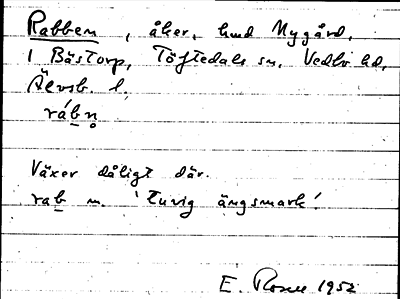 Rabben, åker, hmd Nygård,
1 Bästorp, Töftedals sn, Vedbo hd,
Älvsb. l.
rábn̥
Växer dåligt där.
rab m. 'tuvig ängsmark'.
E. 1952